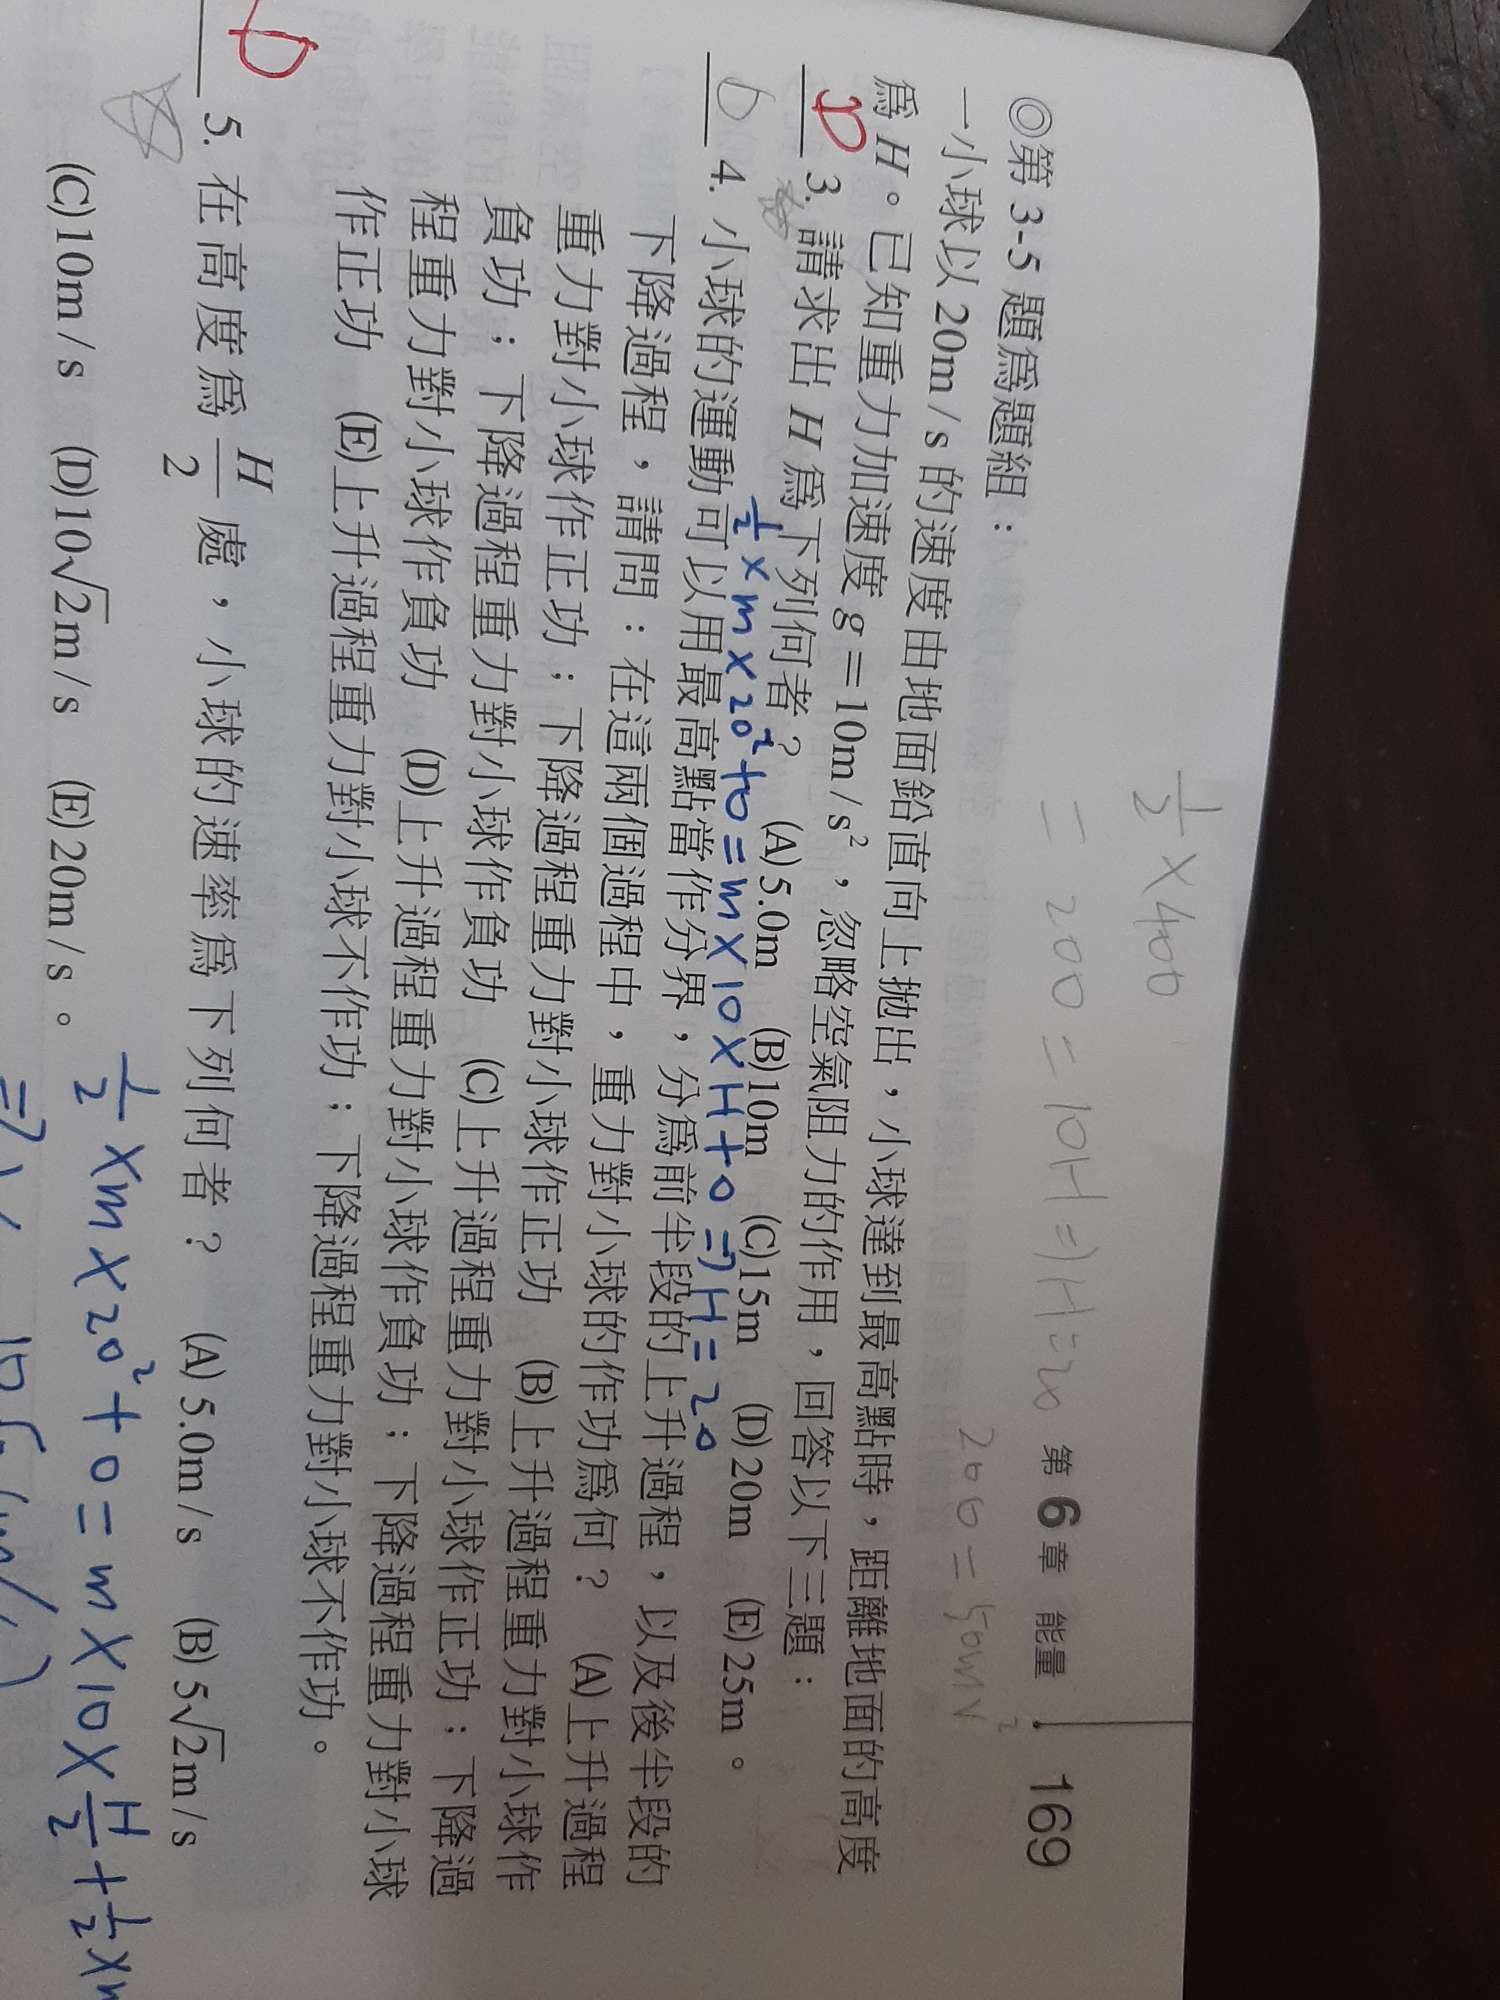 ½×400
=200=10H⇒H=20
200=50mV²
第6章 能量 169
◎第 3-5 題為題組：
一小球以 20m/s 的速度由地面鉛直向上拋出，小球達到最高點時，距離地面的高度
為 H。已知重力加速度 g＝10m/s²，忽略空氣阻力的作用，回答以下三題：
D 3. 請求出 H 為下列何者？ (A) 5.0m (B)10m (C)15m (D)20m (E)25m。
½×m×20²+0=m×10×H+0⇒H=20
D 4. 小球的運動可以用最高點當作分界，分為前半段的上升過程，以及後半段的
下降過程，請問：在這兩個過程中，重力對小球的作功為何？ (A)上升過程
重力對小球作正功；下降過程重力對小球作正功 (B)上升過程重力對小球作
負功；下降過程重力對小球作負功 (C)上升過程重力對小球作正功；下降過
程重力對小球作負功 (D)上升過程重力對小球作負功；下降過程重力對小球
作正功 (E)上升過程重力對小球不作功；下降過程重力對小球不作功。
D 5. 在高度為 H/2 處，小球的速率為下列何者？ (A) 5.0m/s (B) 5√2m/s
(C)10m/s (D)10√2m/s (E)20m/s。
½×m×20²+0=m×10×H/2+½×m